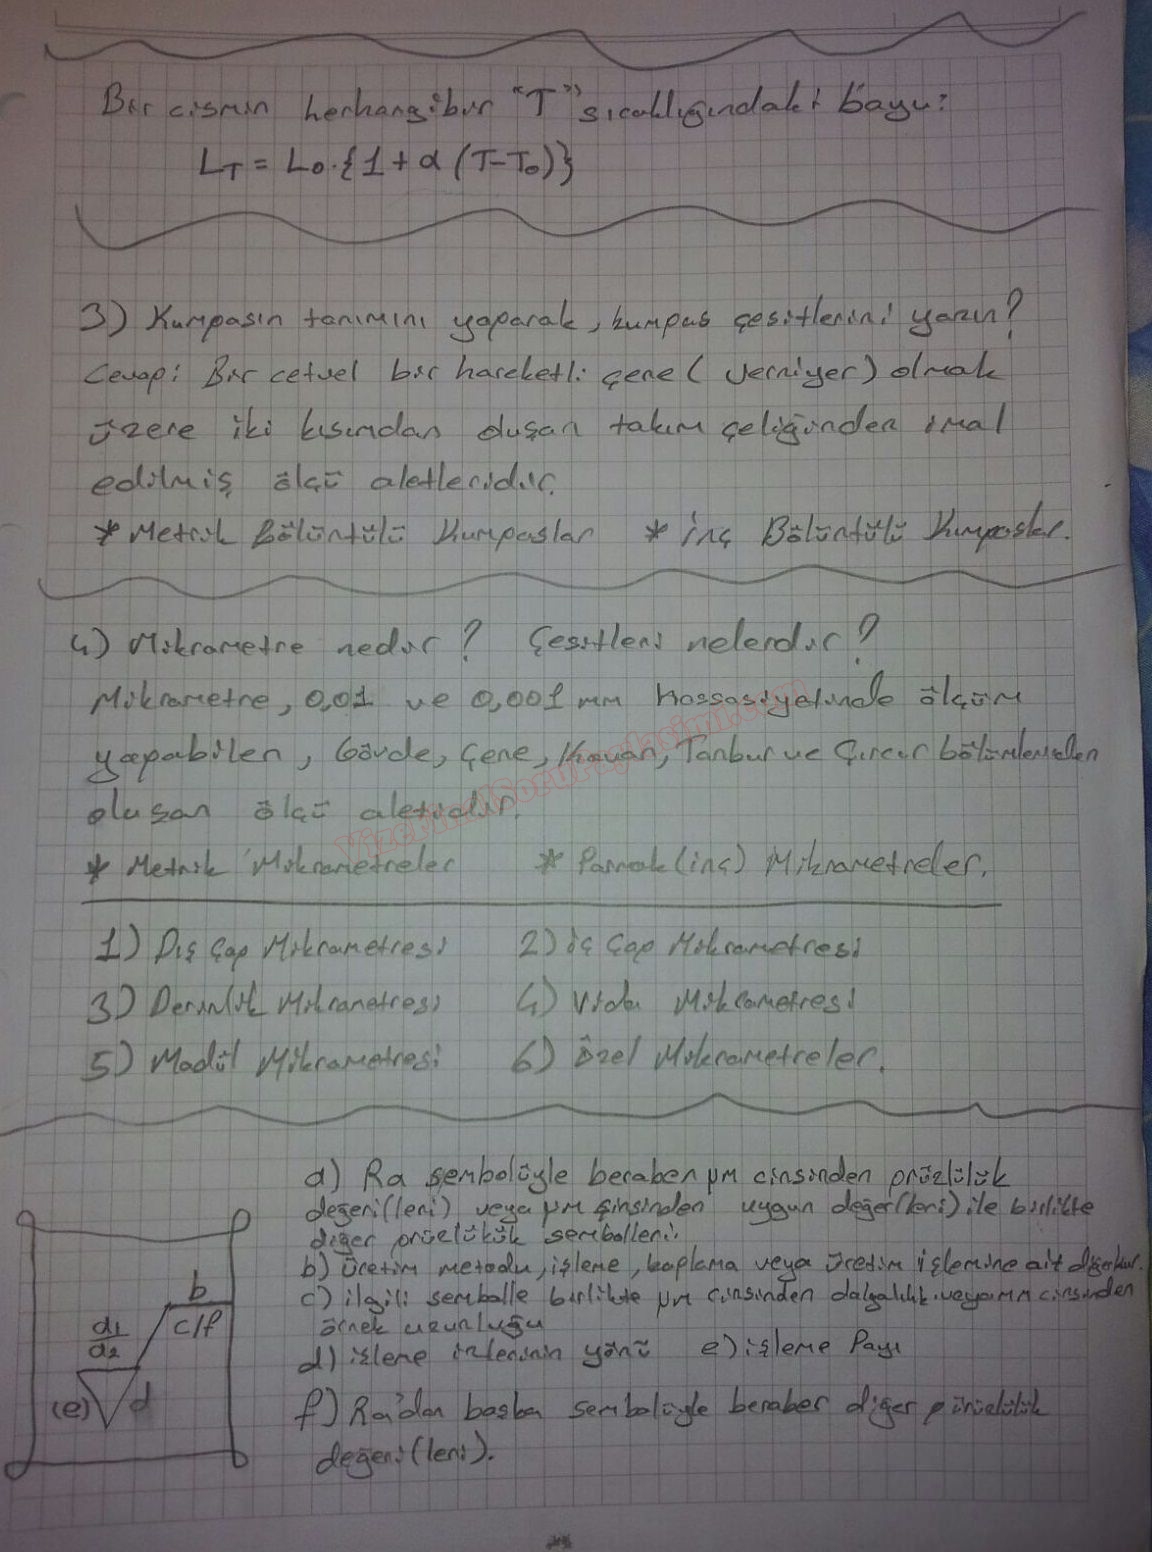 Bir cismin herhangibir "T" sıcaklığındaki boyu:
L_T = L_0.{1 + α (T-T_0)}
3) Kumpasın tanımını yaparak, kumpas çeşitlerini yazın?
Cevap: Bir cetvel bir hareketli çene ( verniyer) olmak
üzere iki kısımdan oluşan takım çeliğinden imal
edilmiş ölçü aletleridir.
* Metrik Bölüntülü Kumpaslar * İnç Bölüntülü Kumpaslar.
4) Mikrometre nedir? Çeşitleri nelerdir?
Mikrometre, 0,01 ve 0,001 mm hassasiyetinde ölçüm
yapabilen, Gövde, Çene, Kovan, Tanbur ve Çırcır bölümlerinden
oluşan ölçü aletidir.
* Metrik Mikrometreler * Parmak (inç) Mikrometreler.
1) Dış Çap Mikrometresi 2) İç Çap Mikrometresi
3) Derinlik Mikrometresi 4) Vida Mikrometresi
5) Modül Mikrometresi 6) Özel Mikrometreler.
a) Ra sembolüyle beraber µm cinsinden prüzlülük
değeri(leri) veya µm cinsinden uygun değer(leri) ile birlikte
diğer prüzlülük sembolleri.
b) Üretim metodu, işleme, kaplama veya üretim işlemine ait diğer
c) ilgili sembolle birlikte µm cinsinden dalgalılık veya mm cinsinden
örnek uzunluğu
d) işleme izlerinin yönü e) işleme Payı
f) Ra'dan başka sembolüyle beraber diğer pürüzlülük
değeri(leri).
b
a1 c/f
a2
(e) d